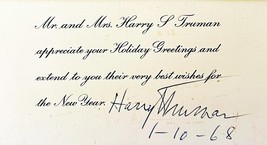 Mr. and Mrs. Harry S Truman
appreciate your Holiday Greetings and
extend to you their very best wishes for
the New Year. Harry Truman
1-10-68